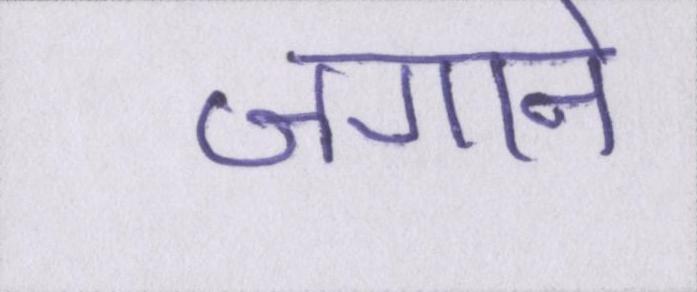 जगाने